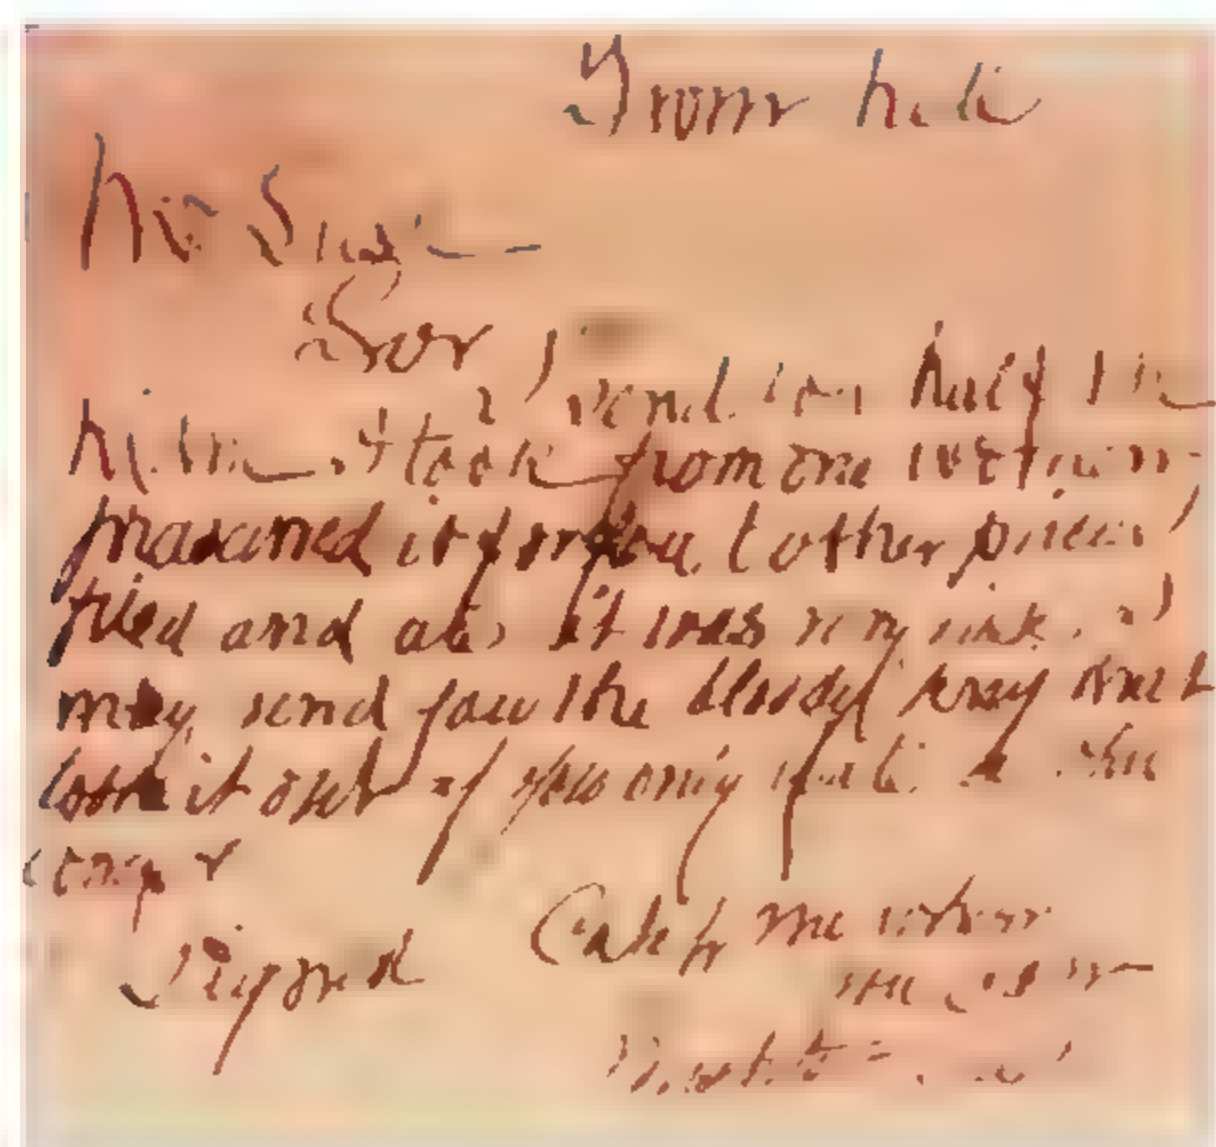 From hell
Mr
Sor
I send you half the
I took from one
prasarved it for you tother piece I
fried and ate it was very nise. I
may send you the bloody that
took it out if you only
longer
signed Catch me when
you can